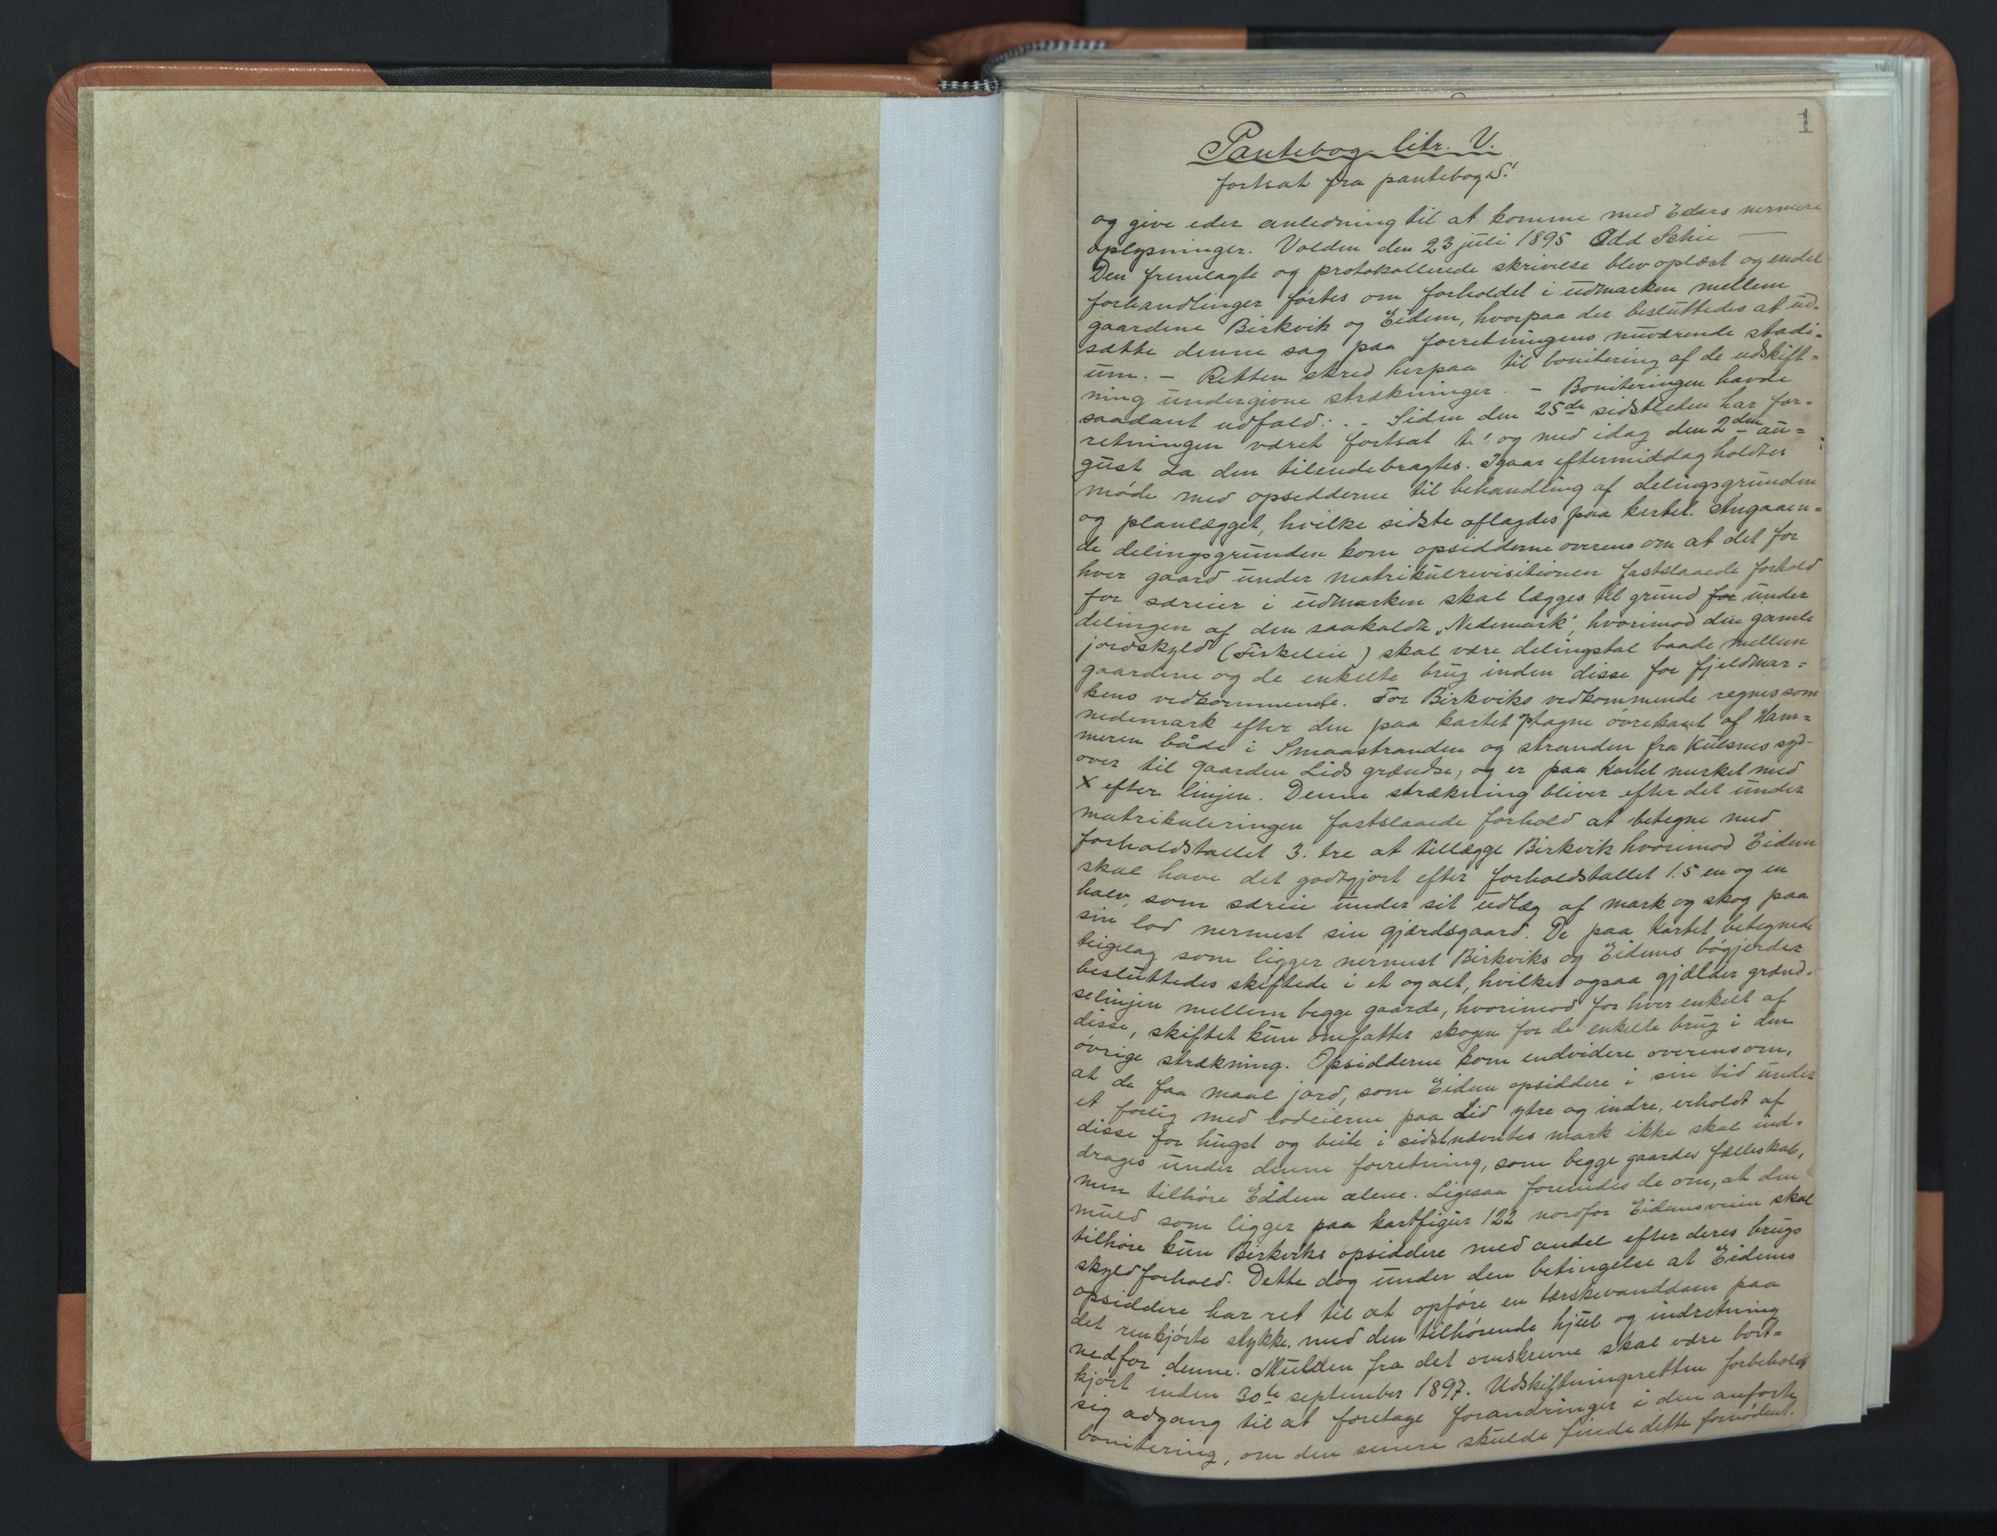 1
Pantebog litr. V.
fortsat fra pantebog
og give eder anledning til at komme med Eders nermere
oplysninger. Volden den 23 juli 1895 Odd Schie
Den fremlagte og protokollerede skrivelse blev oplæst og endel
forhandlinger førtes om forholdet i udmarken mellem
gaardene Birkvik og Eidem, hvorpaa der besluttedes at ud-
sætte denne sag paa forretningens nuværende stadi-
um. – Retten skred herpaa til bonitering af de udskift-
ning undergivne strækninger. – Boniteringen havde
saadant udfald: . – Siden den 25de sidstleden har for-
retningen været fortsat t. og med idag den 2den au-
gust da den tilendebragtes. Igaar eftermiddag holdtes
møde med opsidderne til behandling af delingsgrunden
og planlægget, hvilke sidste aflagdes paa kartet. Angaaen-
de delingsgrunden kom opsidderne overens om at det for
hver gaard under matrikulrevisitionen fastslaaede forhold
for særeier i udmarken skal lægges til grund for under
delingen af den saakaldte „Nedemark", hvorimod den gamle
jordskyld (Fiskeleie) skal være delingstal baade mellem
gaardene og de enkelte brug inden disse for fjeldmar-
kens vedkommende. For Birkviks vedkommende regnes som
nedemark efter den paa kartet øvrekant af Ham-
meren både i Smaastranden og stranden fra Kulsnes syd-
over til gaarden Lids grændse, og er paa kartet merket med
x efter linjen. Denne strækning bliver efter det under
matrikuleringen fastslaaede forhold at betegne med
forholdstallet 3. tre at tillægge Birkvik hvorimod Eidem
skal have det godtgjort efter forholdstallet 1.5 en og en
halv, som særeie under sit udlæg af mark og skog paa
sin lod nermest sin gjærdsgaard. De paa kartet betegnede
teigelag som ligger nermest Birkviks og Eidems bøgjerder
besluttedes skiftede i et og alt, hvilket ogsaa gjælder grænd-
selinjen mellem begge gaarde, hvorimod for hver enkelt af
disse, skiftet kun omfatter skogen for de enkelte brug i den
øvrige strækning. Opsidderne kom endvidere overens om,
at de faa maal jord, som Eidem opsiddere i sin tid under
et forlig med lodeierne paa Lid ytre og indre, erholdt af
disse for hugst og beite i sidstnævntes mark ikke skal ind-
drages under denne forretning, som begge gaardes fælleskab,
men tilhøre Eidem alene. Ligesaa forenedes de om, at den
muld som ligger paa kartfigur 122 nordfor Eidemsveien skal
tilhøre kun Birkviks opsiddere med andel efter deres brugs
skyldforhold. Dette dog under den betingelse at Eidems
opsiddere har ret til at opføre en tærskevanddam paa
det renkjørte stykke. med den tilhørende hjul og indretning
nedfor denne. Mulden fra det omskrevne skal være bort-
kjørt inden 30te september 1897. Udskiftningsretten forbeholdt
sig adgang til at foretage forandringer i den anførte
bonitering, om den senere skulde finde dette fornødent.